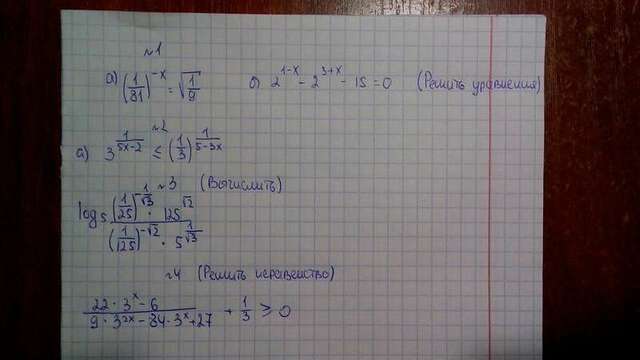 №1
а) (1/81)^(-x) = √(1/9) б) 2^(1-x) - 2^(3+x) - 15 = 0 (Решить уравнения)
№2
а) 3^(1/(5x-2)) ≤ (1/3)^(1/(5-3x))
№3 (Вычислить)
log₅ ((1/25)^(-1/√3) · 125^(√2)) / ((1/125)^(-√2) · 5^(1/√3))
№4 (Решить неравенство)
(22 · 3^x - 6) / (9 · 3^(2x) - 84 · 3^x + 27) + 1/3 ≥ 0